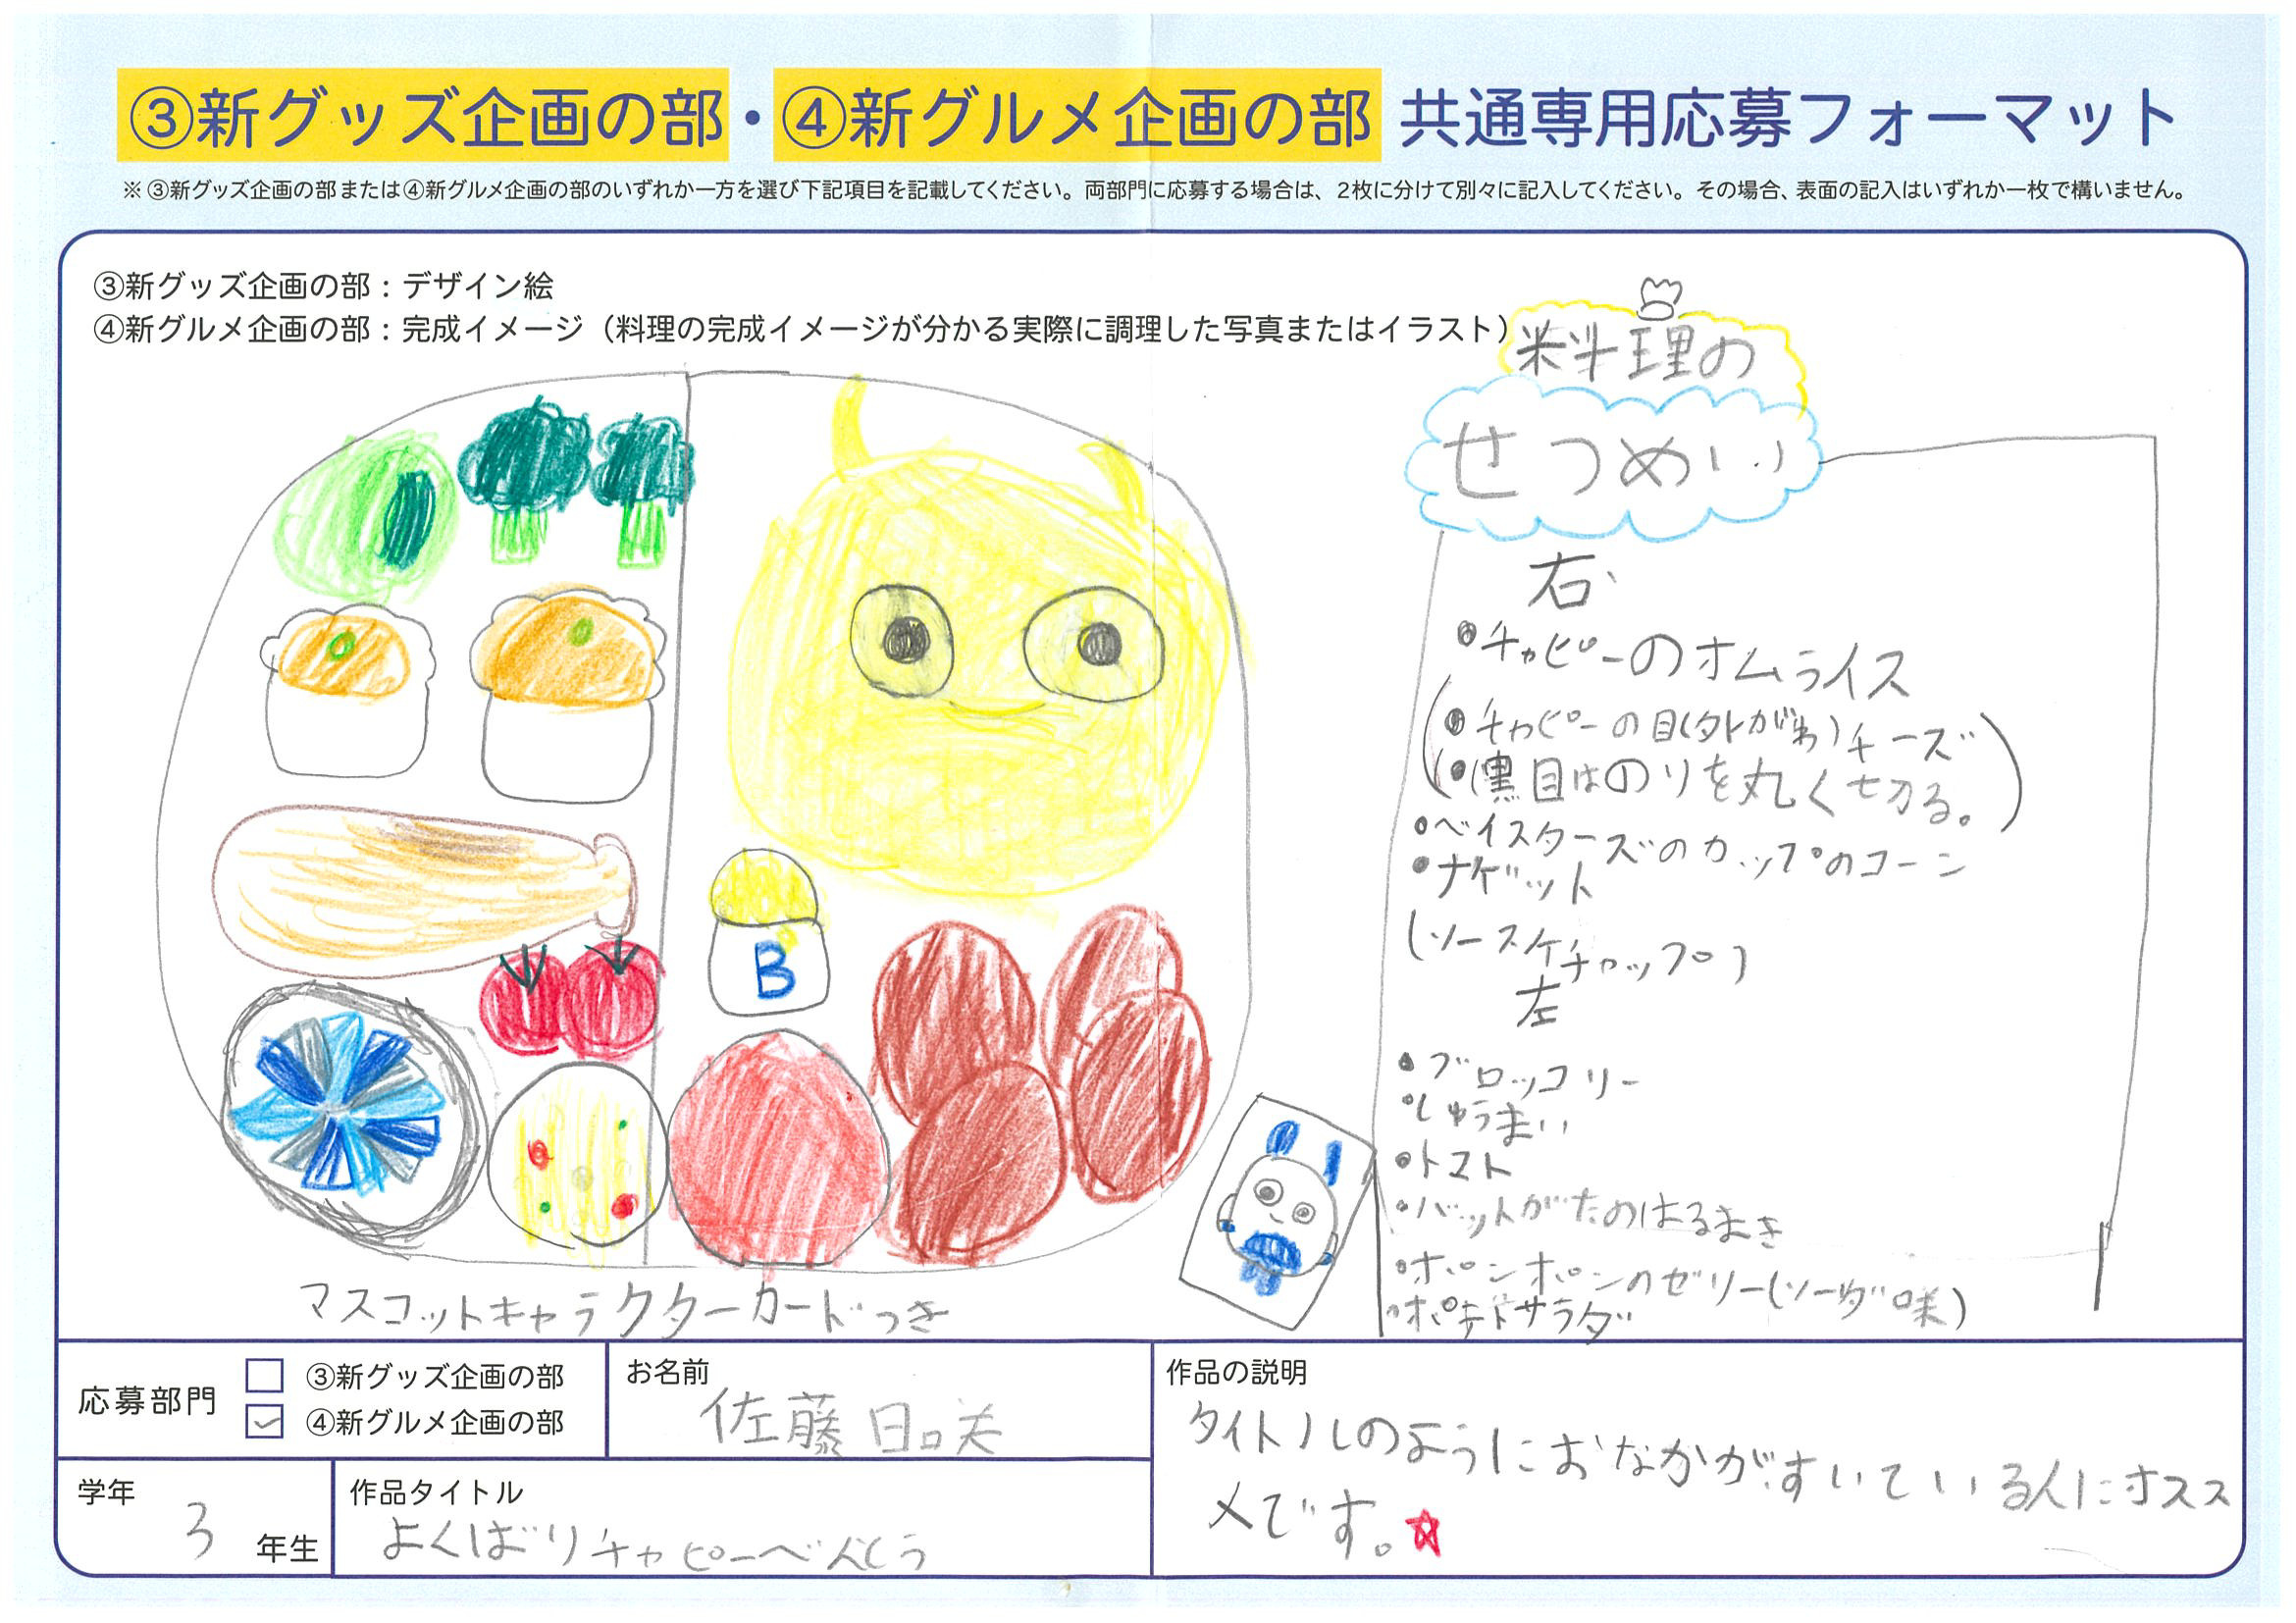 ③新グッズ企画の部・④新グルメ企画の部 共通専用応募フォーマット
※③新グッズ企画の部または④新グルメ企画の部のいずれか一方を選び下記項目を記載してください。両部門に応募する場合は、2枚に分けて別々に記入してください。その場合、表面の記入はいずれか一枚で構いません。
③新グッズ企画の部：デザイン絵
④新グルメ企画の部：完成イメージ（料理の完成イメージが分かる実際に調理した写真またはイラスト）
料理の
せつめい
右
•チャピーのオムライス
(•チャピーの目(外がわ)チーズ
(•黒目はのりを丸く切る。)
•ベイスターズのカップのコーン
•ナゲット
(ソースケチャップ)
左
•ブロッコリー
•しゅうまい
•トマト
•バットがたのはるまき
•ポンポンのゼリー(ソーダ味)
•ポテトサラダ
B
マスコットキャラクターカードつき
応募部門
③新グッズ企画の部
④新グルメ企画の部
お名前
佐藤
学年
3年生
作品タイトル
よくばりチャピーべんとう
作品の説明
タイトルのようにおなかがすいている人にオスス
メです。